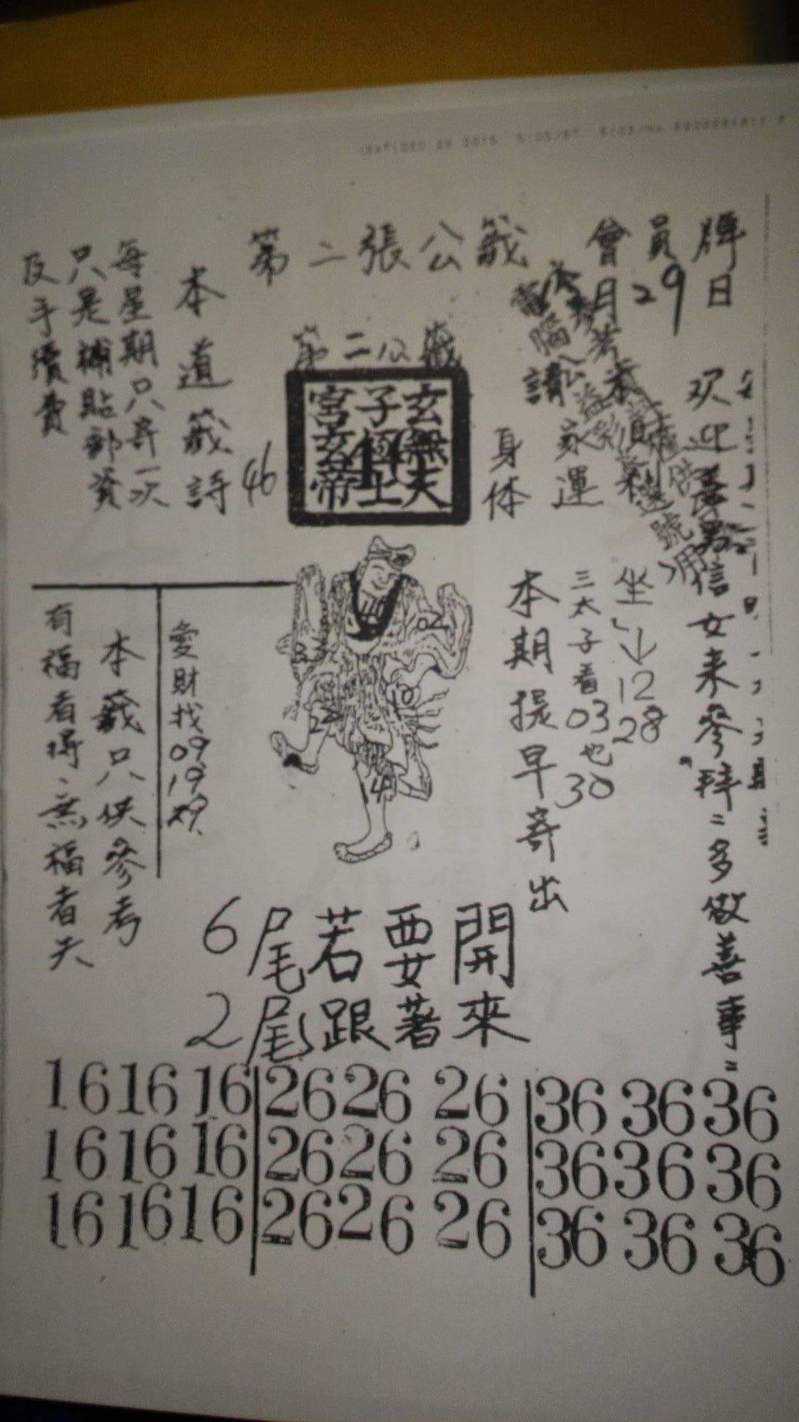 第二張公籤
會員牌
月29日
第二公籤
玄無天
子極上
宮玄帝
每星期只寄一次
只是補貼郵資
及手續費
本道籤詩
46
家運
身体
欢迎善男信女来參拜多做善事
坐
12
28
三太子看03也30
本期提早寄出
愛財找09 19
本籤只供參考
有福者得、無福者失
02
6尾若要開
2尾跟著來
16 16 16 26 26 26 36 36 36
16 16 16 26 26 26 36 36 36
16 16 16 26 26 26 36 36 36